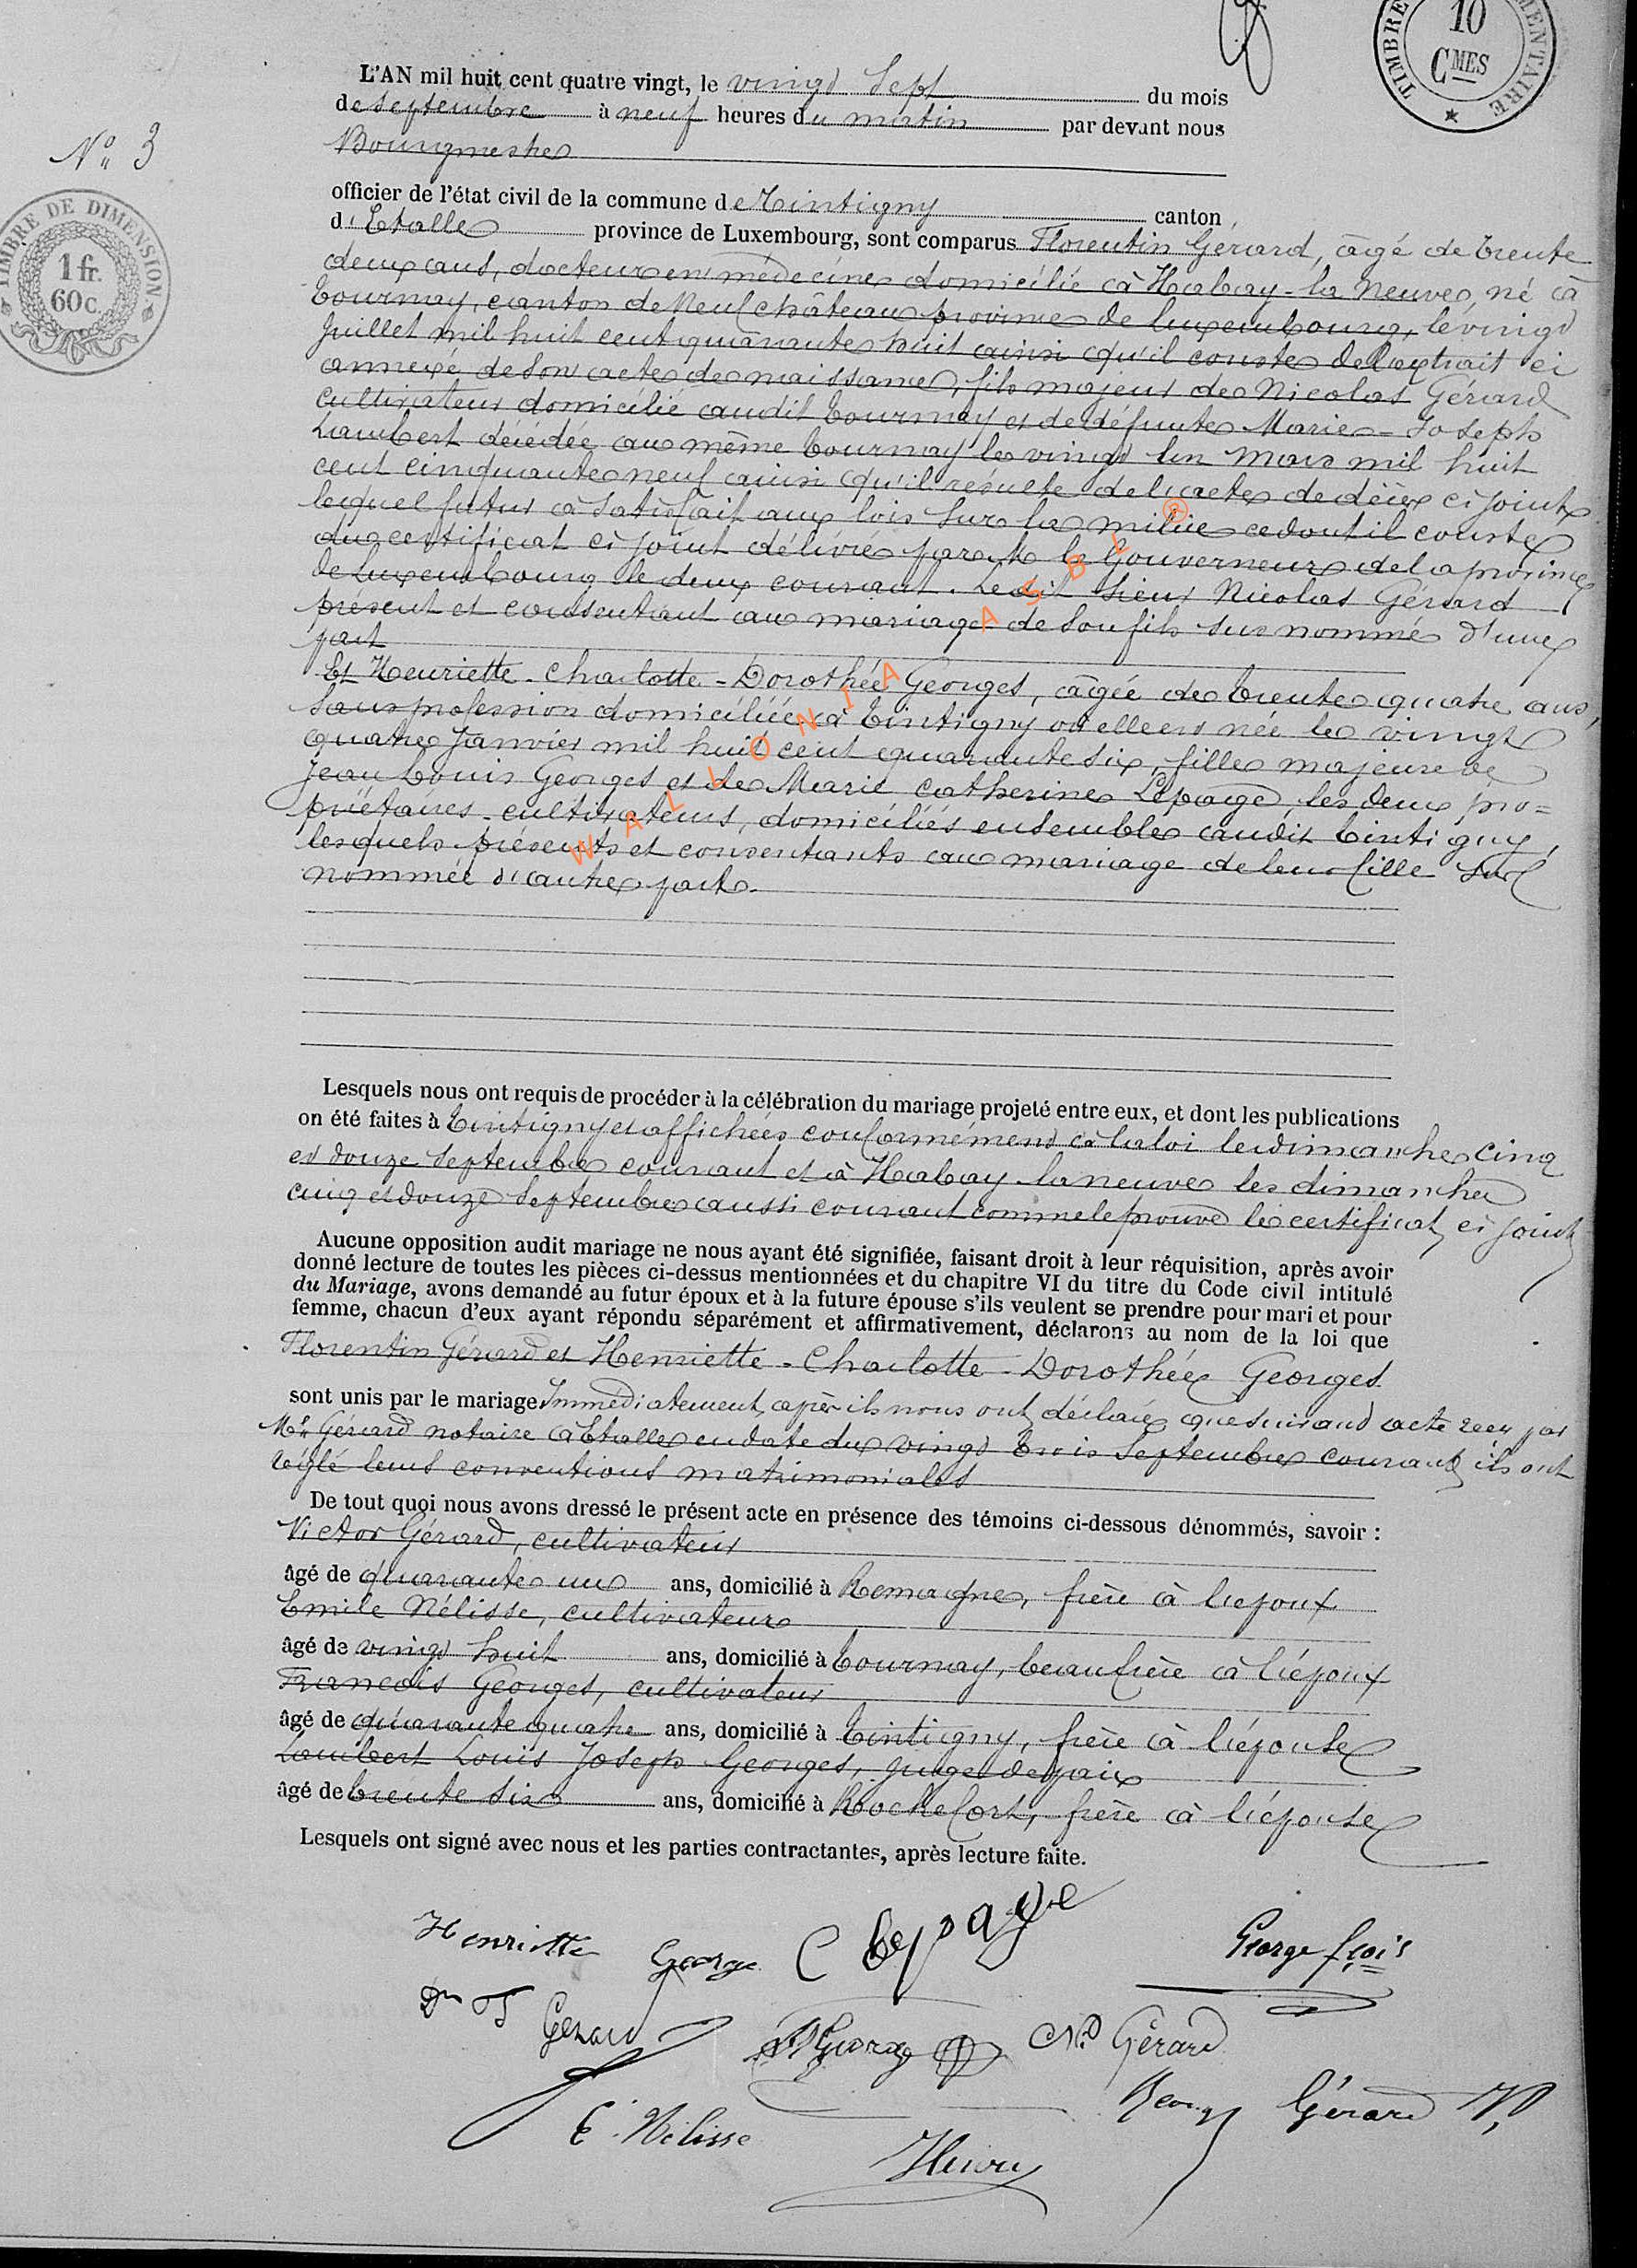 TIMBRE
10
CMES
L'AN mil huit cent quatre vingt, le vingt sept du mois
de septembre à neuf heures du matin par devant nous
N° 3
Bourgmestre
officier de l'état civil de la commune de Tintigny canton
d'Etalle province de Luxembourg, sont comparus Florentin Gérard, âgé de trente
TIMBRE DE DIMENSION
1 fr.
60c.
deux ans, docteur en médecine domicilié à Habay-la Neuve, né à
Tournay, canton de Neufchâteau province de Luxembourg, le vingt
Juillet mil huit cent quarante huit ainsi qu'il conste de l'extrait ci
annexé de son acte de naissance, fils majeur de Nicolas Gérard
cultivateur domicilié audit Tournay et de défunte Marie-Joseph
Lambert décédée au même Tournay le vingt un Mars mil huit
cent cinquante neuf ainsi qu'il résulte de l'acte de décès ci joint
lequel futur à satisfait aux lois sur la milice ce dont il conste
du certificat ci joint délivré par le Gouverneur de la province
de Luxembourg le deux courant. Ledit sieur Nicolas Gérard
présent et consentant au mariage de son fils sus nommé d'une
part
Et Henriette-Charlotte-Dorothée Georges, âgée de trente quatre ans,
sans profession domiciliée à Tintigny où elle est née le vingt
quatre Janvier mil huit cent quarante six, fille majeure de
Jean Louis Georges et de Marie Catherine Lepage les deux pro=
priétaires-cultivateurs, domiciliés ensemble audit Tintigny,
lesquels présents et consentants au mariage de leur fille sus
nommée d'autre part.
WALLONIA ASBL ®
Lesquels nous ont requis de procéder à la célébration du mariage projeté entre eux, et dont les publications
on été faites à Tintigny et affichées conformément à la loi les dimanches cinq
et douze septembre courant et à Habay-la neuve les dimanches
cinq et douze Septembre aussi courant comme le prouve le certificat ci joint
Aucune opposition audit mariage ne nous ayant été signifiée, faisant droit à leur réquisition, après avoir
donné lecture de toutes les pièces ci-dessus mentionnées et du chapitre VI du titre du Code civil intitulé
du Mariage, avons demandé au futur époux et à la future épouse s'ils veulent se prendre pour mari et pour
femme, chacun d'eux ayant répondu séparément et affirmativement, déclarons au nom de la loi que
Florentin Gérard et Henriette-Charlotte-Dorothée Georges
sont unis par le mariage Immédiatement après ils nous ont déclaré que suivant acte reçu par
Me Gérard notaire à Etalle en date du vingt trois Septembre courant ils ont
réglé leurs conventions matrimoniales
De tout quoi nous avons dressé le présent acte en présence des témoins ci-dessous dénommés, savoir :
Victor Gérard, cultivateur
âgé de quarante un ans, domicilié à Remagne, frère à l'époux
Emile Nélisse, cultivateur
âgé de vingt huit ans, domicilié à Tournay, beau frère à l'époux
François Georges, cultivateur
âgé de quarante quatre ans, domicilié à Tintigny, frère à l'épouse
Lambert Louis Joseph Georges, juge de paix
âgé de trente six ans, domicilié à Rochefort, frère à l'épouse
Lesquels ont signé avec nous et les parties contractantes, après lecture faite.
Henriette George C Lepage George fçois
Dr Gérard Georges Nas Gérard
E. Nélisse Gérard V,